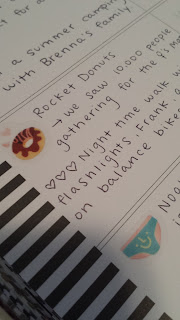 t for a
a summer camping
with Brenna's family
Rocket Donuts
→ we saw 10,000 people
gathering for the 1's m
♡♡♡ Night time walk w
flashlights. Frank
on balance bike
Noa